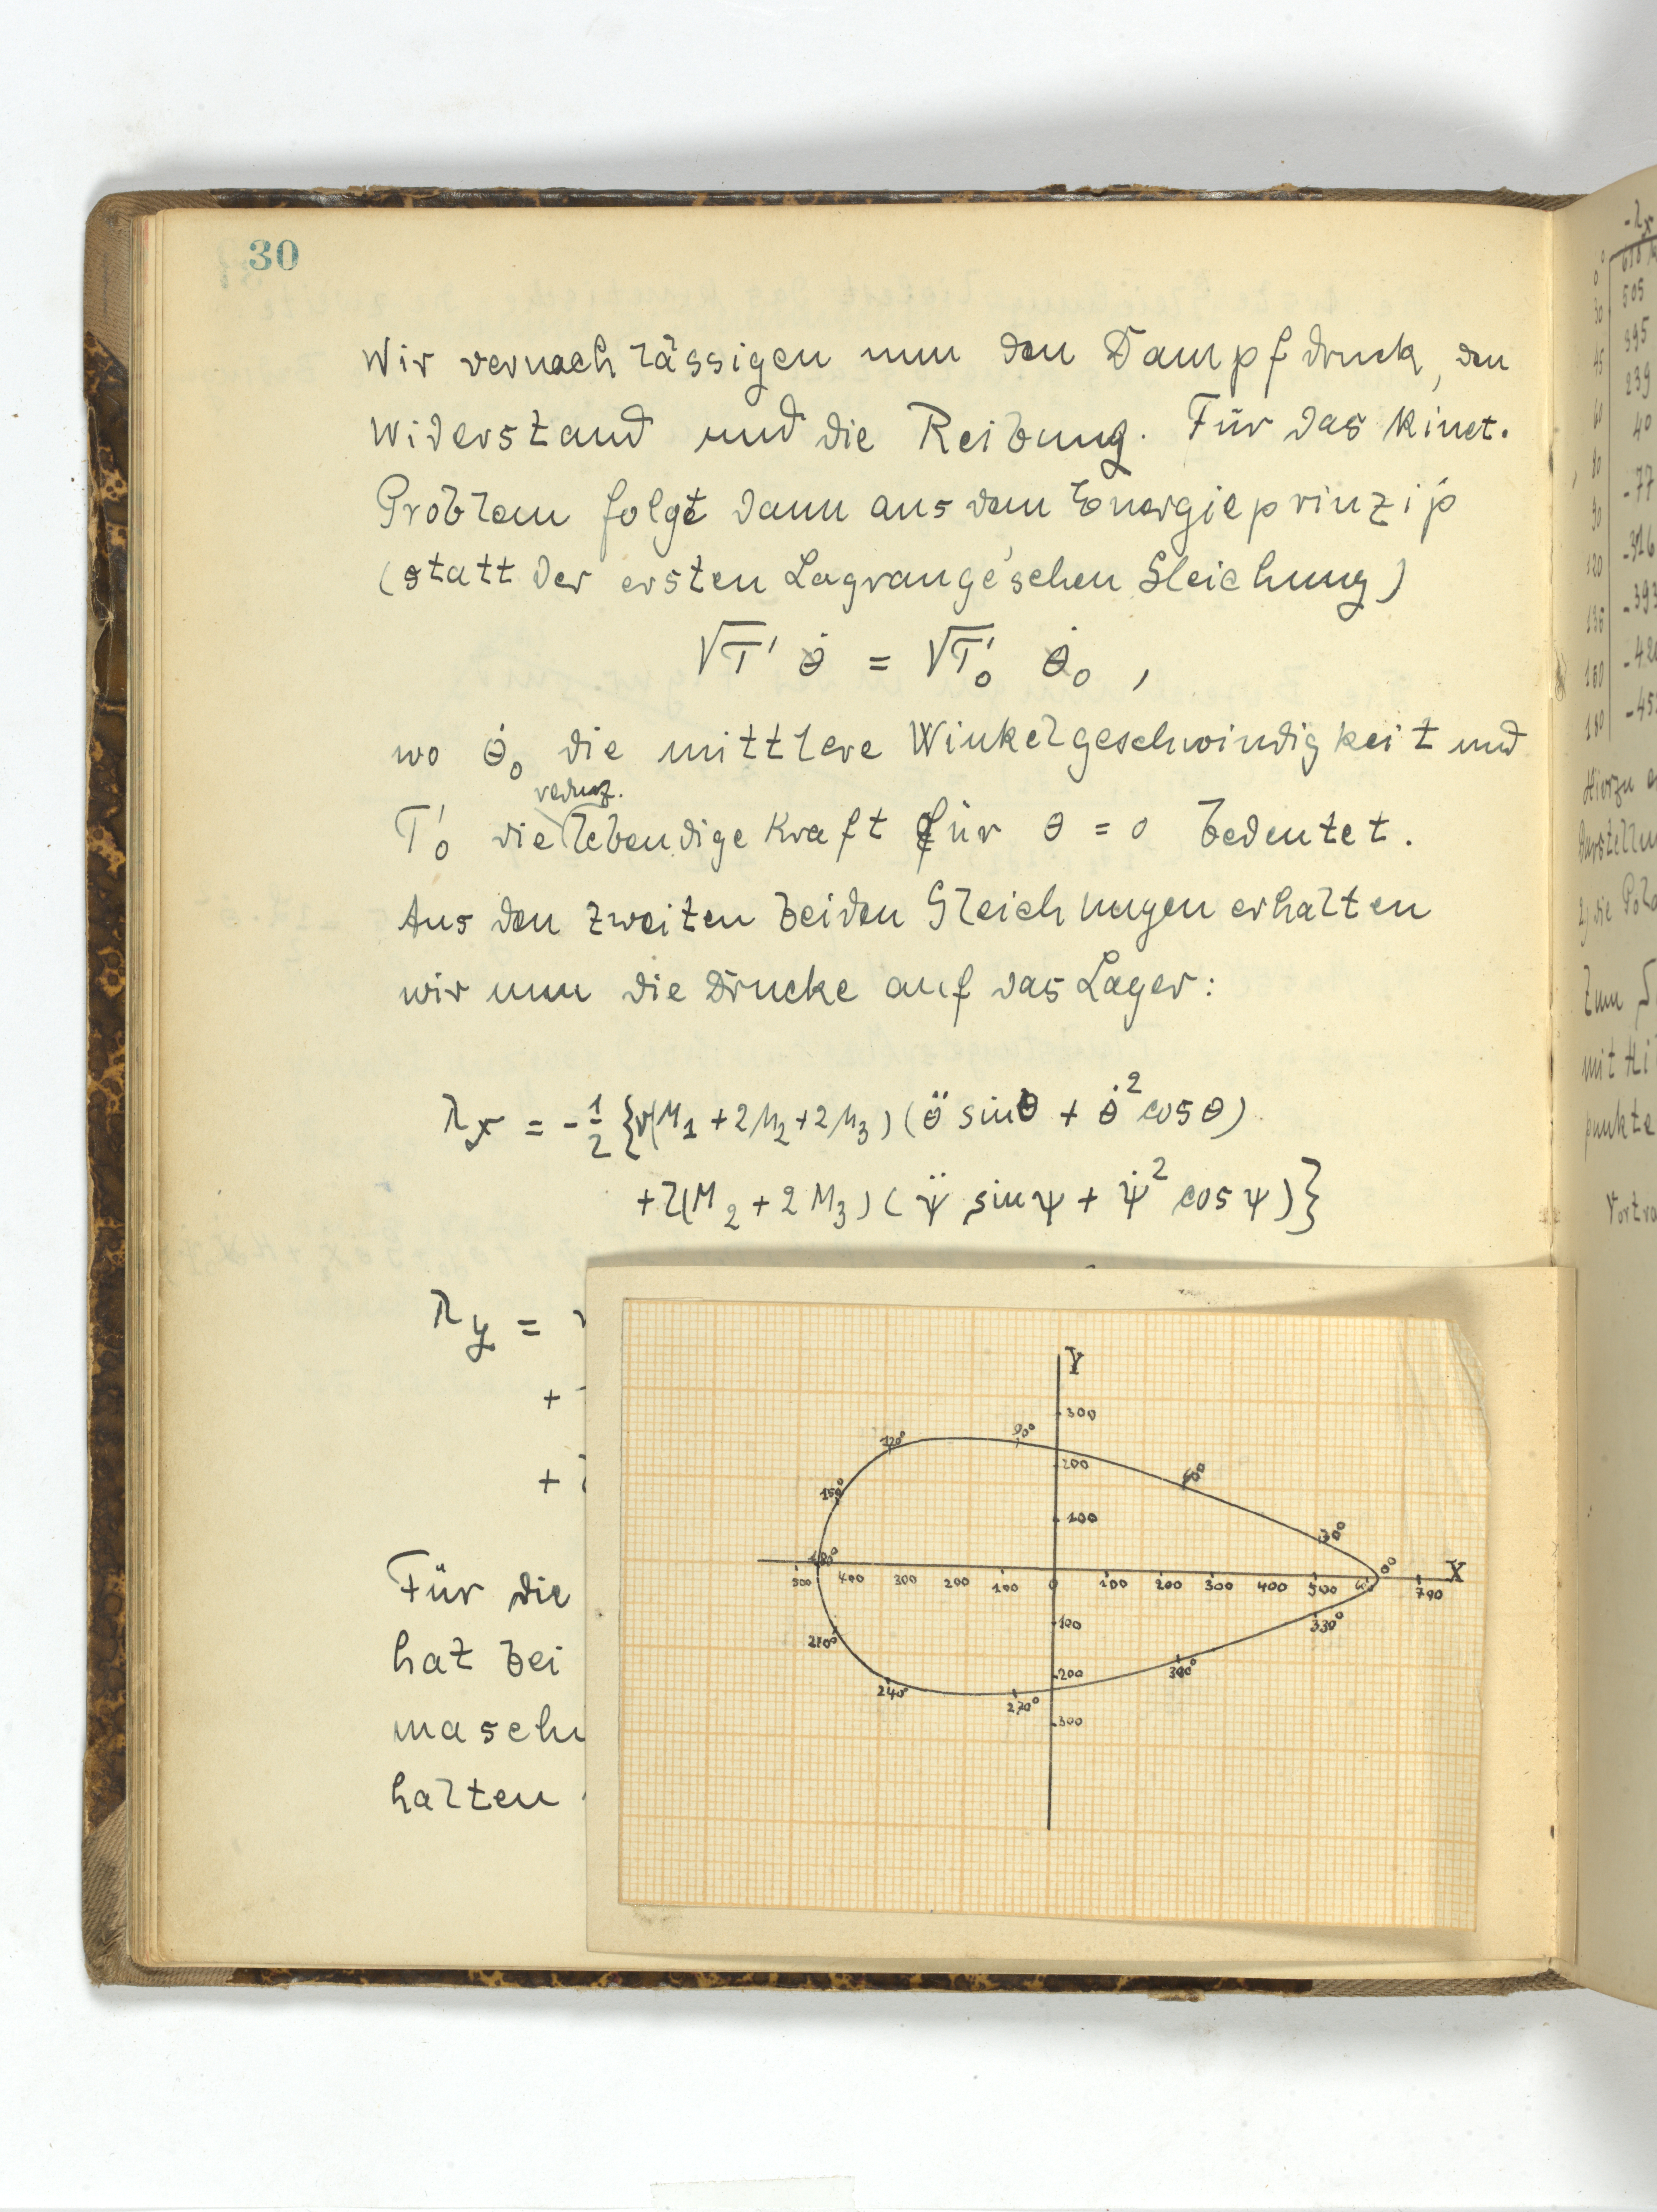 30
Wir vernachlässigen nun den Dampfdruck, den
Widerstand und die Reibung. Für das kinet.
Problem folgt dann aus dem Energieprinzip
(statt der ersten Lagrange'schen Gleichung)
√T' θ̇ = √T'₀ θ̇₀ ,
wo θ̇₀ die mittlere Winkelgeschwindigkeit und
reduz.
T'₀ die lebendige Kraft für θ = 0 bedeutet.
Aus den zweiten beiden Gleichungen erhalten
wir nun die Drucke auf das Lager:
λx = -1/2 {r(M₁ + 2M₂ + 2M₃) (θ̈ sinθ + θ̇² cosθ)
+ l(M₂ + 2M₃) (ψ̈ sinψ + ψ̇² cosψ)}
λy =
+
+
Für die
hat bei
maschi
halten
Y
300
120° 90°
200 60°
150°
100 30°
180° 0° X
500 400 300 200 100 0 100 200 300 400 500 700
100 330°
210°
200 300°
240° 270°
300
-λx
0°
30 505
45 395
60 239
40
90 -77
120 -316
135 -393
-42
180 -45
Hierzu
Darstellu
2) die Pol
Zum
mit Hi
punkte
Vortra